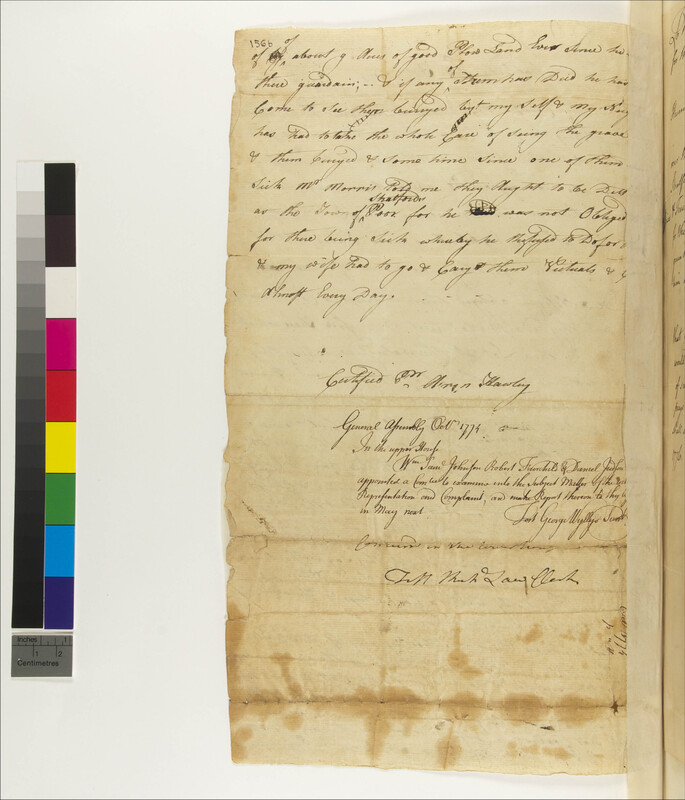 156b
of
of about 9 Acres of good Plow Land Ever Since he
there guardain; & if any of them has Died he has
Come to See them buryed but my Self & my
has had to take the whole Care of Seing the grave
& them buryed & Some time Since one of them
Sick Mr Morris told me they Aught to be
Stratford
as the Town Poor for he was not Obliged
for there being Sick whereby he Refused to Do for
& my wife had to go & Cary them Victuals &
Almost Every Day.
Certified Pr Hawley
General Assembly Octr 1774
In the upper House
Wm Saml Johnson Robert & Daniel Judson
appointed a Comtee to examine into the Subject Matter of the
Representation and Complaint, and make Report thereon to
in May next
Test George Wyllys Secret
Concurred in the Lower House
Test Richd Law Clerk
Inches 1
1 2
Centimetres